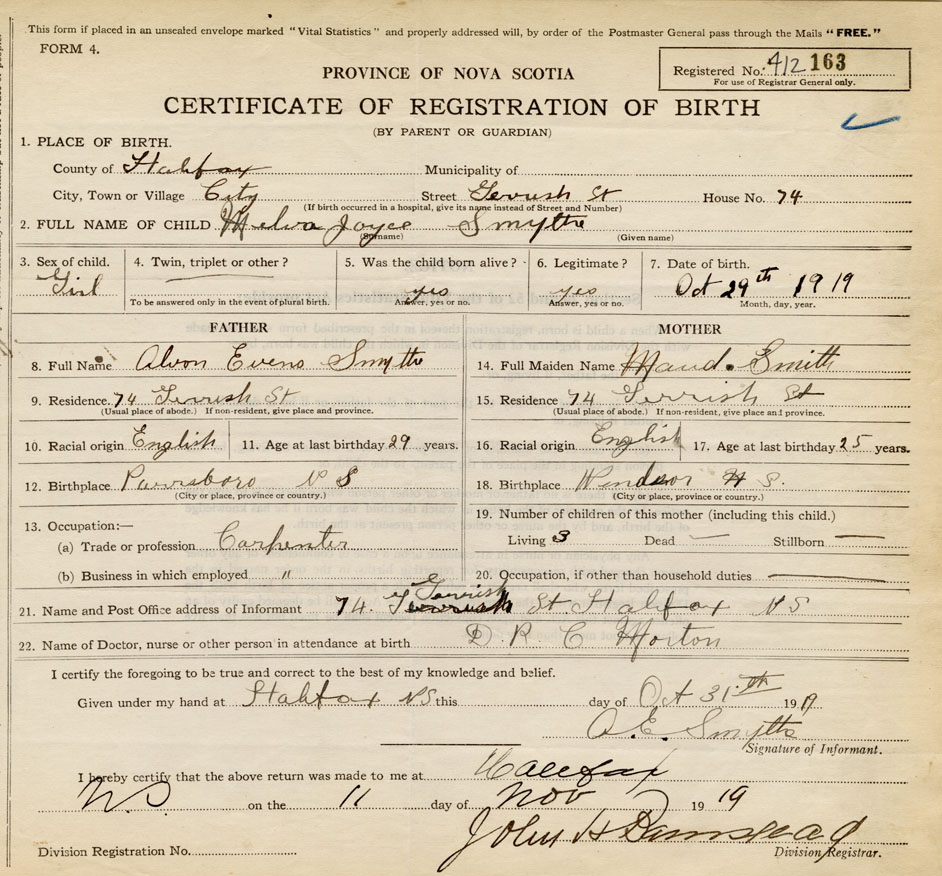 This form if placed in an unsealed envelope marked "Vital Statistics" and properly addressed will, by order of the Postmaster General pass through the Mails "FREE."
FORM 4.
Registered No. 412 163
For use of Registrar General only.
PROVINCE OF NOVA SCOTIA
CERTIFICATE OF REGISTRATION OF BIRTH
(BY PARENT OR GUARDIAN)
1. PLACE OF BIRTH.
County of Halifax Municipality of
City, Town or Village City Street Gerrish St House No. 74
(If birth occurred in a hospital, give its name instead of Street and Number)
2. FULL NAME OF CHILD Melva Joyce Smythe
(Surname) (Given name)
3. Sex of child. 4. Twin, triplet or other? 5. Was the child born alive? 6. Legitimate? 7. Date of birth.
Girl yes yes Oct 29th 1919
To be answered only in the event of plural birth. Answer, yes or no. Answer, yes or no. Month, day, year.
FATHER MOTHER
8. Full Name Alvon Evens Smythe 14. Full Maiden Name Maud. Smith
9. Residence. 74 Gerrish St 15. Residence 74 Gerrish St
(Usual place of abode.) If non-resident, give place and province. (Usual place of abode.) If non-resident, give place and province.
10. Racial origin English 11. Age at last birthday 29 years. 16. Racial origin English 17. Age at last birthday 25 years.
12. Birthplace Parrsboro N S 18. Birthplace Windsor N S.
(City or place, province or country.) (City or place, province or country.)
13. Occupation:— 19. Number of children of this mother (including this child.)
(a) Trade or profession Carpenter Living 3 Dead — Stillborn —
(b) Business in which employed " 20. Occupation, if other than household duties
21. Name and Post Office address of Informant 74. Gerrish St Halifax NS
22. Name of Doctor, nurse or other person in attendance at birth D R C Morton
I certify the foregoing to be true and correct to the best of my knowledge and belief.
Given under my hand at Halifax NS this day of Oct 31th 1919
A. E. Smythe
Signature of Informant.
I hereby certify that the above return was made to me at Halifax
NS on the 11 day of Nov 1919
John H Barnstead
Division Registration No. Division Registrar.